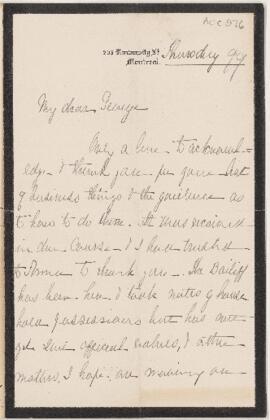 Acc 576
Thursday 9th
Montreal.
My dear George
Only a line to acknowl-
edge & thank you for your list
of business things & the guidance as
to how to do them. It was received
in due course & I have trusted
to to thank you. The Bailiff
has been here & took notes of house
hold possessions but has not
yet sent official values, & other
matters, I hope are moving on